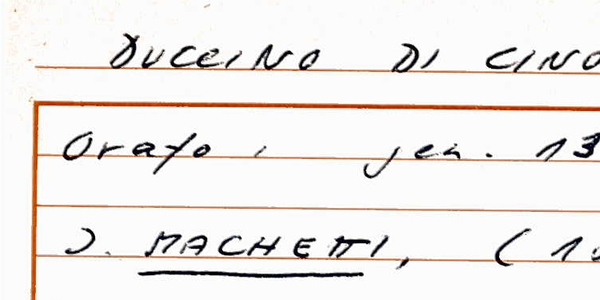 DUCCINO DI CINO
Orafo, gen. 13
J. MACHETTI, (1